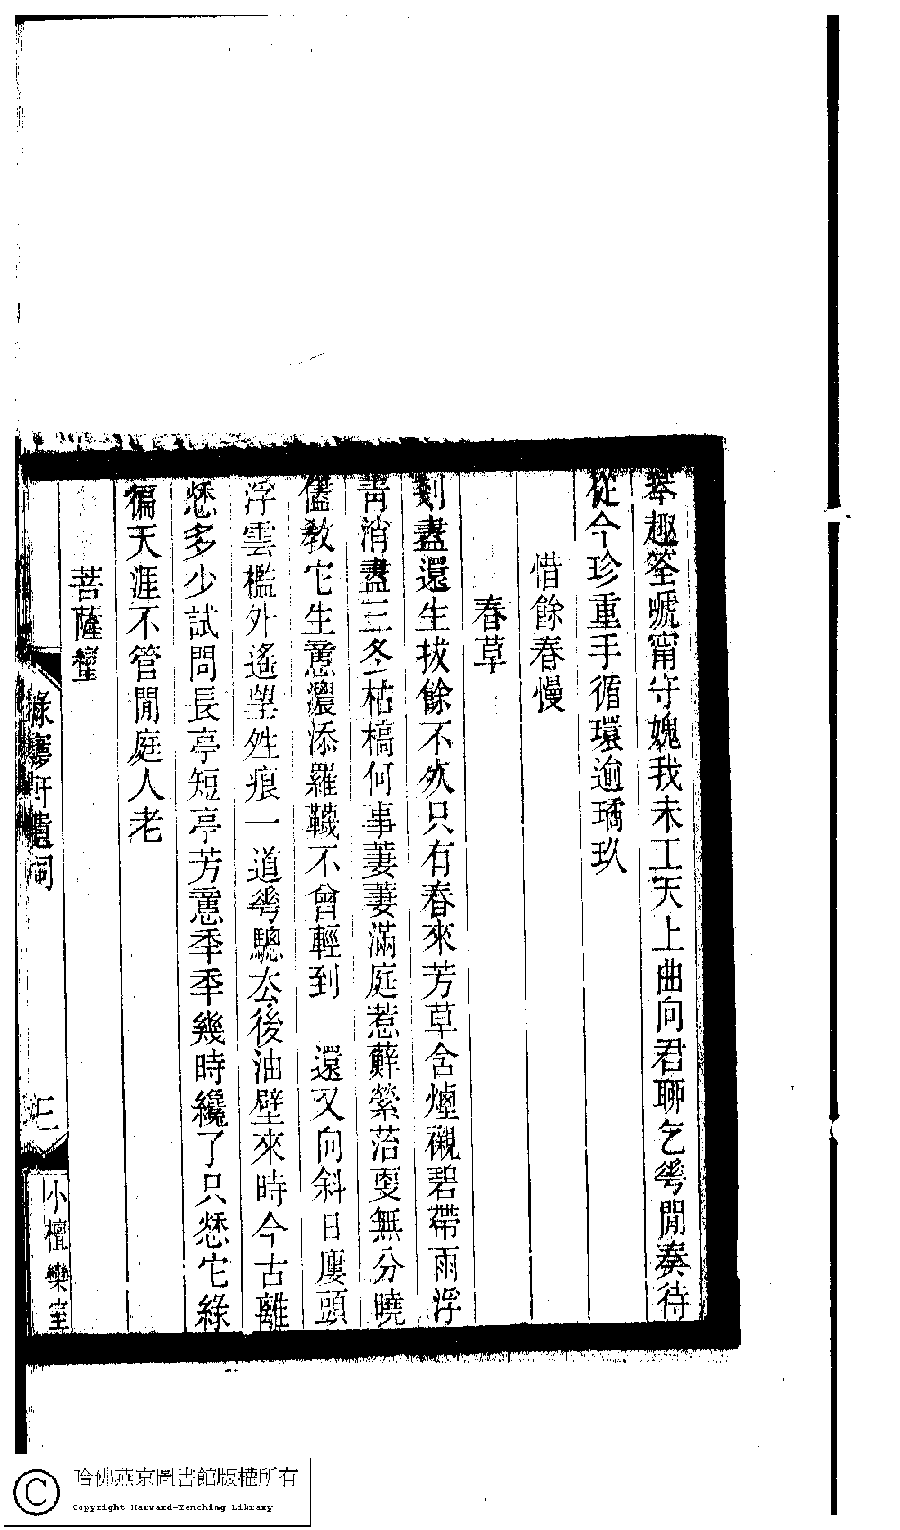 琴趣筌蹏甯守媿我未工天上曲向君聊乞㠌閒奏待
從今珍重手循環逾璚玖
惜餘春慢
春草
剗盡還生拔餘不夊只有春來芳草含煙襯碧帶雨浮
青消盡三冬枯槁何事萋萋滿庭惹蘚縈苔㪅無分曉
儘教它生意濃添羅韈不曾輕到　還又向斜日廔頭
浮雲檻外遙望姓痕一道㠌驄厺後油壁來時今古離
愁多少試問長亭短亭芳意秊秊幾時纔了只愁它綠
徧天涯不管閒庭人老
菩薩蠻
綠窻遺詞
小檀欒室
哈佛燕京圖書館版權所有
Copyright Harvard-Yenching Library